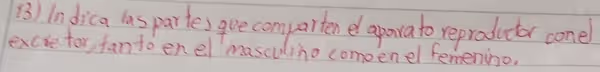 13) Indica las partes que comparten el aparato reproductor con el
excretor, tanto en el masculino como en el femenino.